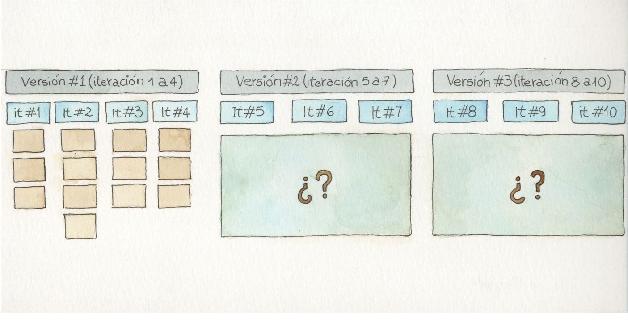 Versión #1 (iteración 1 a 4)
it #1 it #2 it #3 it #4
Versión #2 (iteración 5 a 7)
It #5 It #6 It #7
¿?
Versión #3 (iteración 8 a 10)
It #8 It #9 It #10
¿?